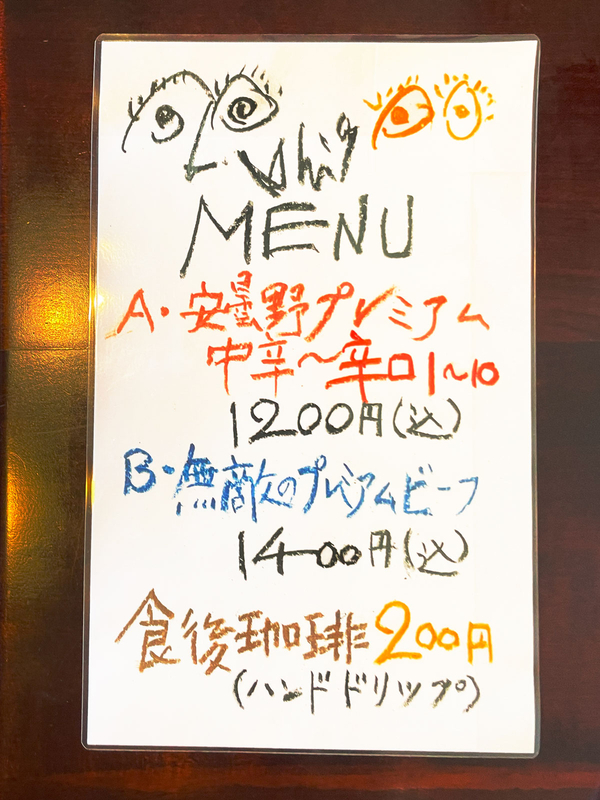 MENU
A・安曇野プレミアム
中辛〜辛口1〜10
1200円(込)
B・無敵のプレミアムビーフ
1400円(込)
食後珈琲200円
(ハンドドリップ)